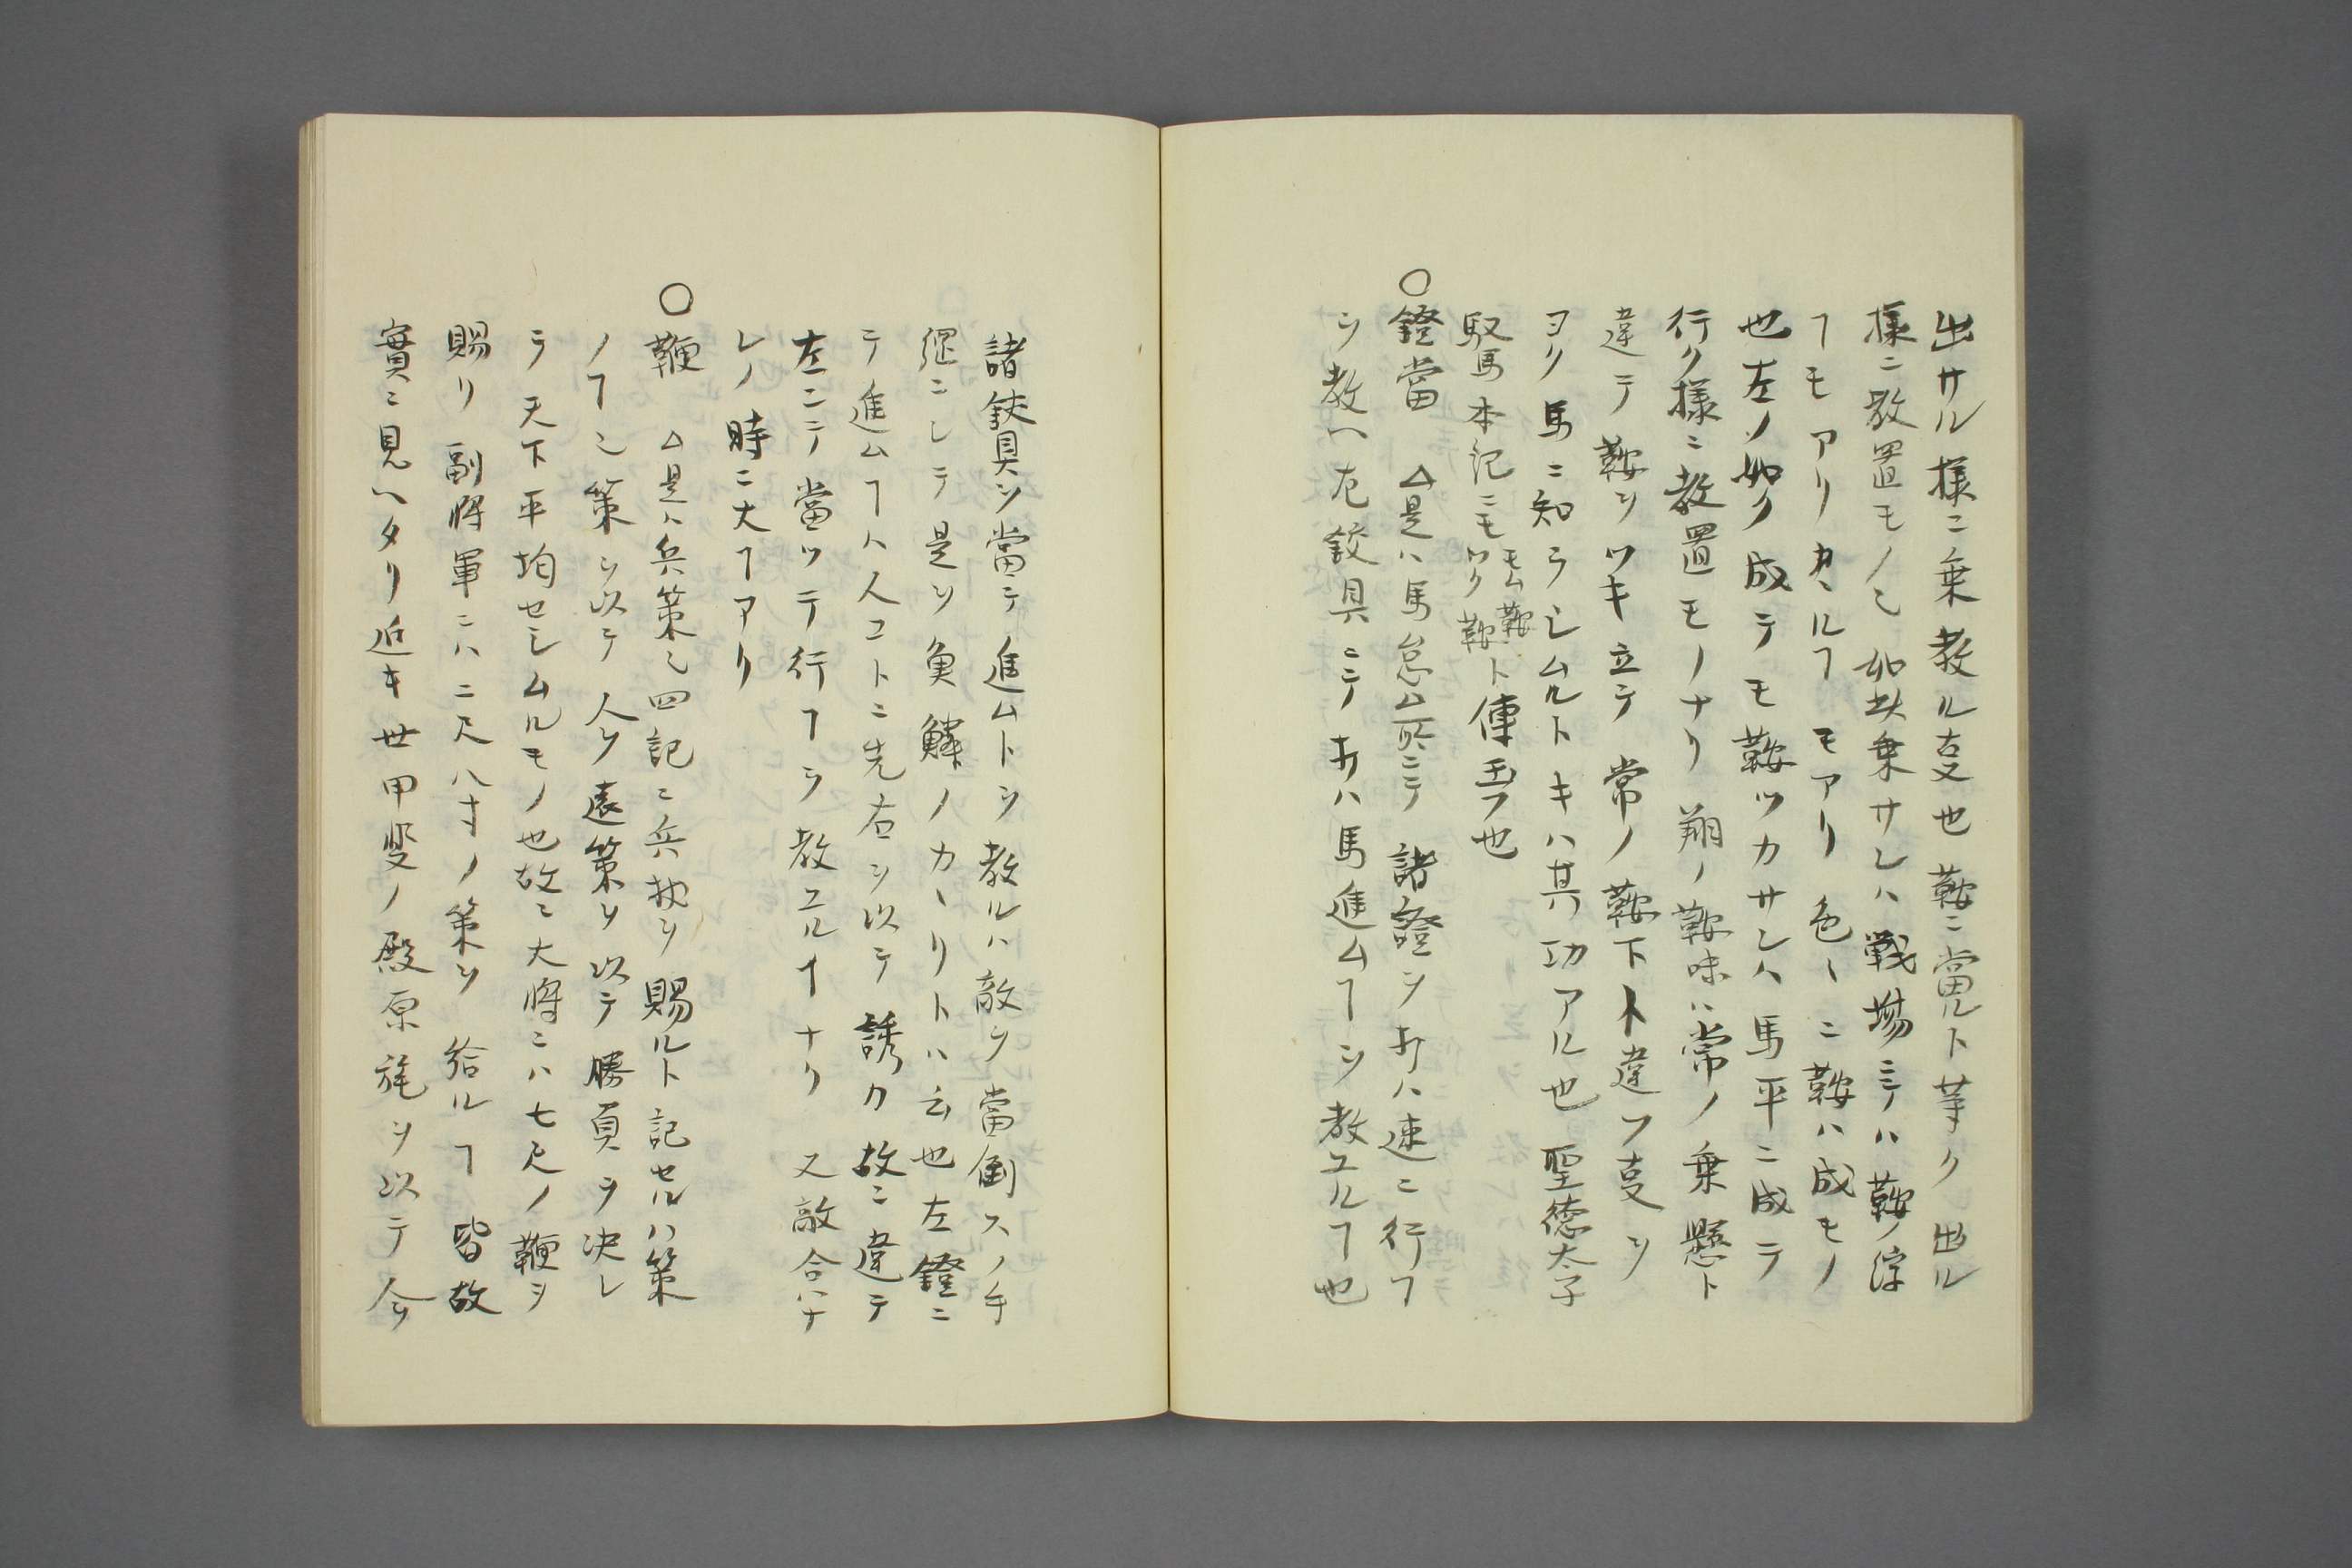 出サル様ニ乗教ル叓也鞍ニ當ルト等ク出ル
様ニ教置モノ也如此乗サレハ戦場ニテハ鞍ノ浮
ヿモアリカヽルヿモアリ色〻ニ鞍ハ成モノ
也左ノ如ク成テモ鞍ツカサレハ馬平ニ成テ
行ク様ニ教置モノナリ翔ノ鞍味ハ常ノ乗懸ト
違テ鞍ヲツキ立テ常ノ鞍下ト違フ叓ヲ
ヨク馬ニ知ラシムルトキハ其功アル也聖徳太子
馭馬本記ニモモム鞍ツク鞍ト傳玉フ也
〇鐙當 △是ハ馬怠ム所ニテ諸鐙ヲ打ハ速ニ行フ
ヲ教ヘ左鉸具ニテ打ハ馬進ムヿヲ教ユルヿ也
諸鉸具ヲ當テ進ムトヲ教ルハ敵ヲ當倒スノ手
縄ニシテ是ヲ魚鱗ノカヽリトハ云也左鐙ニ
テ進ムヿハ人コトニ先右ヲ以テ誘カ故ニ違テ
左ニテ當ツテ行ヿヲ教ユルヿナリ又敵合ハナ
レノ時ニ大ヿアリ
〇鞭 △是ハ兵策也四記ニ兵杖ヲ賜ルト記セルハ策
ノヿ也策ヲ以テ人ヲ遠策ヲ以テ勝負ヲ決シ
テ天下平均セシムルモノ也故ニ大将ニハ七尺ノ鞭ヲ
賜リ副将軍ニハ二尺八寸ノ策ヲ給ルヿ皆故
實ニ見ヘタリ近キ世甲斐ノ殿原旄ヲ以テ令